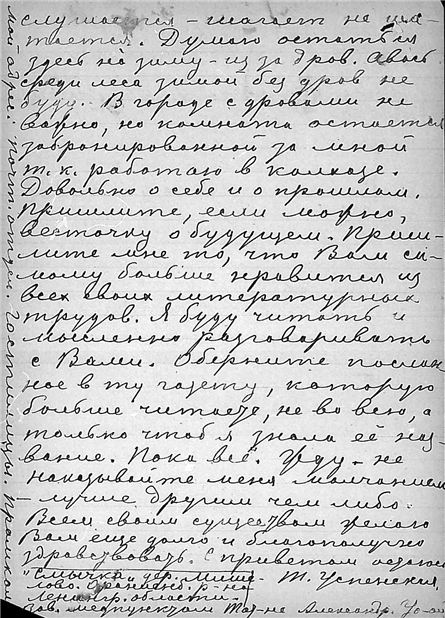 слушается – шагает не ша-
тается. Думаю остаться
здесь на зиму – из за дров. Авось
среди леса зимой без дров не
буду. В городе с дровами не
важно, но комната остается
забронированной за мной
т.к. работаю в колхозе.
Довольно о себе и о прошлом.
Пришлите, если можно,
весточку о будущем. Приш-
лите мне то, что Вам са-
мому больше нравится из
всех своих литературных
трудов. Я буду читать и
мысленно разговаривать
с Вами. Оберните послан
ное в ту газету, которую
больше читаете, не во всю, а
только чтоб я знала её наз-
вание. Пока всё. Жду – не
наказывайте меня молчанием
– лучше другим чем либо.
Всем своим существом желаю
Вам ещё долго и благополучно
здравствовать. С приветом
Т. Успенская.
"Смычка" дер.
Ораниенб. р-на
Ленингр. области
Зав. медпунктом Александр.
Мой адрес: почт. отдел. Гостилицы.